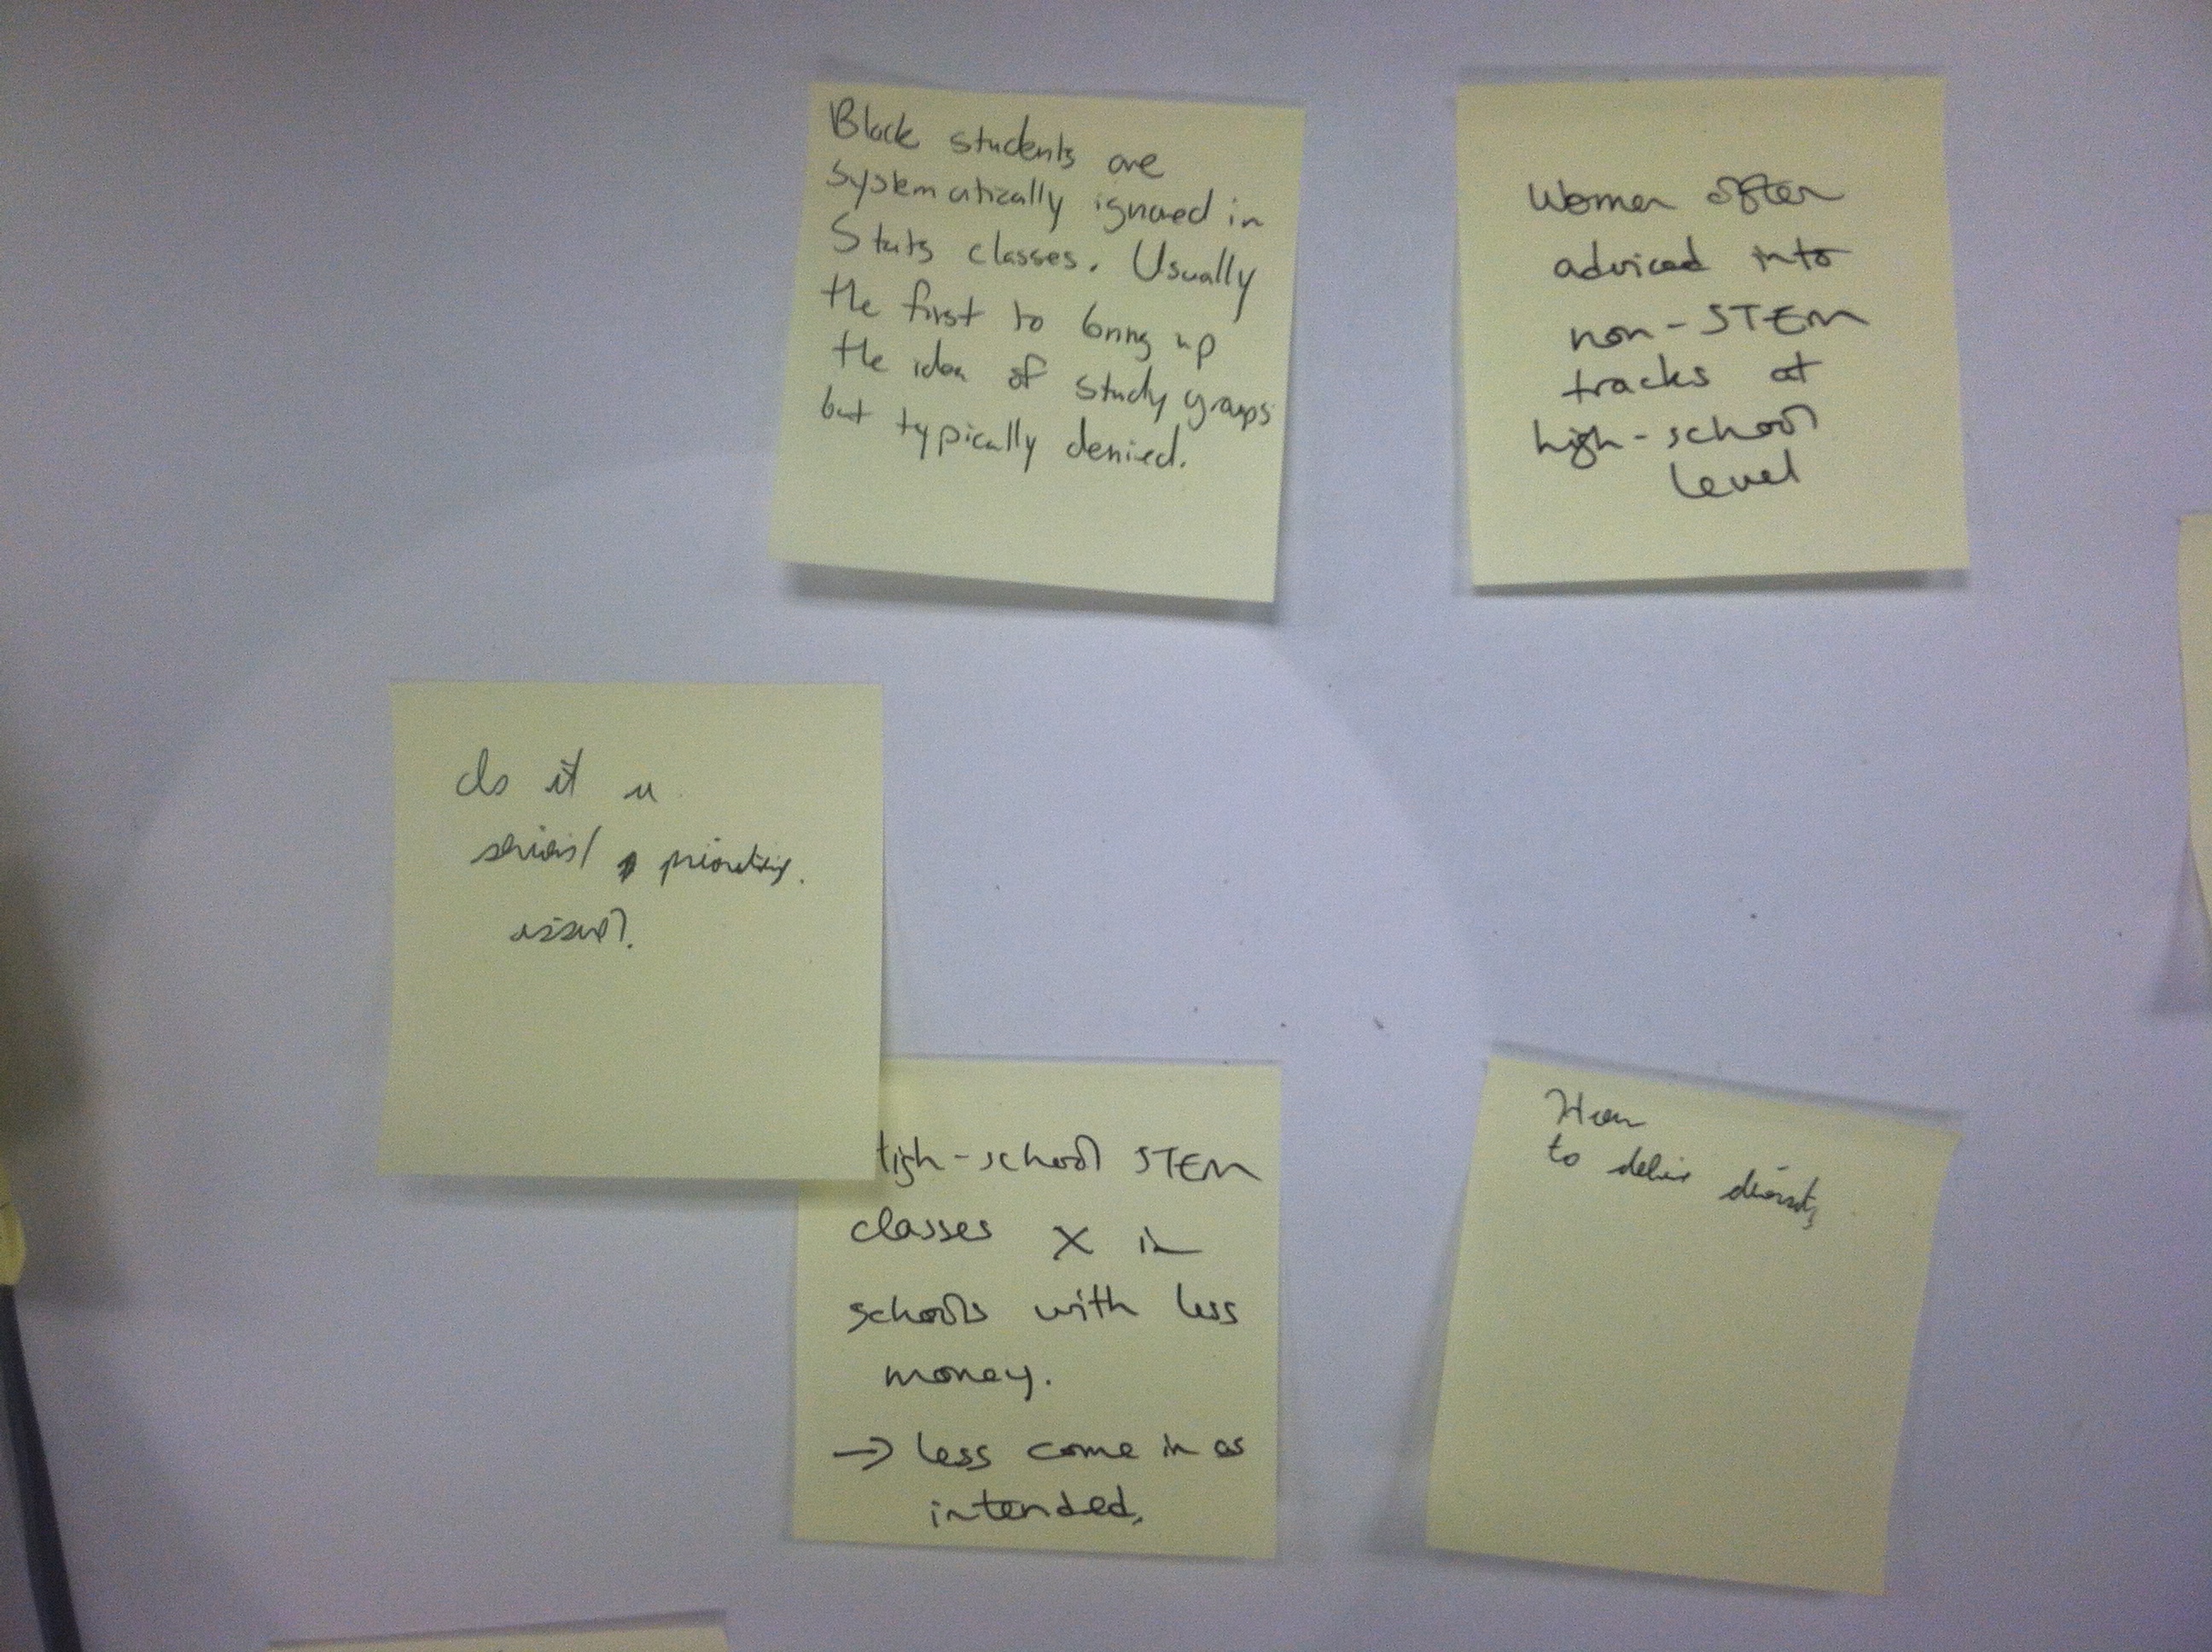 Black students are
systematically ignored in
Stats classes. Usually
the first to bring up
the idea of study groups
but typically denied.
Women often
adviced into
non-STEM
tracks at
high-school
level
Is it a
serious/ prioritizing
issue?
High-school STEM
classes X in
schools with less
money.
→ less come in as
intended.
How
to define diversity